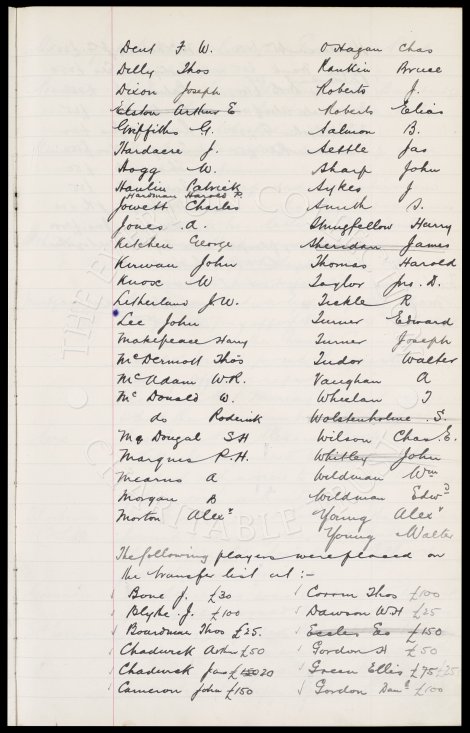 Dent F. W.
Dilly Thos
Dixon Joseph
Elston Arthur E
Griffiths G.
Hardacre J.
Hogg W.
Hanlin Patrick
Hardman Harold P.
Jowett Charles
Jones A.
Kitchen George
Kirwan John
Knox W
Litherland J.W.
Lee John
Makepeace Harry
McDermott Thos
McAdam W.R.
McDonald W.
do Roderick
McDougal S H
Marques P.H.
Mearns A
Morgan B
Morton Alexr
O'Hagan Chas
Rankin Bruce
Roberts J.
Roberts Elias
Salmon B.
Settle Jas
Sharp John
Sykes J
Smith S.
Stringfellow Harry
Sheridan James
Thomas Harold
Taylor Jno. D.
Tickle R
Turner Edward
Turner Joseph
Tudor Walter
Vaughan A
Whelan T
Wolstenholme S.
Wilson Chas. E.
Whitley John
Wildman Wm
Wildman Edwd
Young Alexr
Young Walter
The following players were placed on
the transfer list at :-
Bone J. £30
Blythe J. £100
Boardman Thos £25.
Chadwick Arthur £50
Chadwick Jas £20
Cameron John £150
Corrin Thos £100
Dawson W H £25
Eccles Geo £150
Gordon H £50
Green Ellis £75 £25
Gordon Danl £100